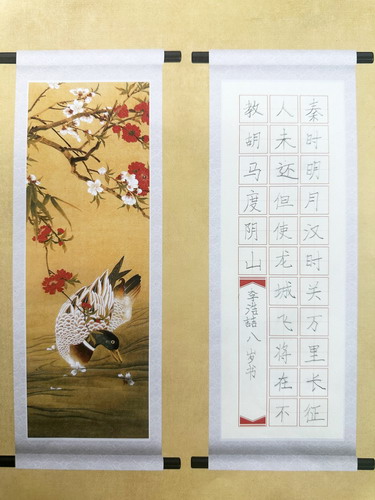 秦时明月汉时关万里长征
人未还但使龙城飞将在不
教胡马度阴山
李浩喆 八岁书